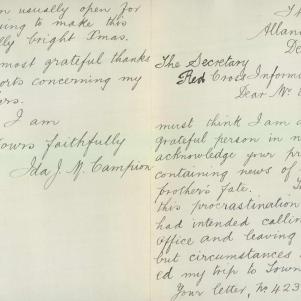 usually open for
to make this
bright Xmas.
most grateful thanks
concerning my
I am
Yours faithfully
Ida J. M. Campion
The Secretary
Red Cross Inform
Dear Mr.
must think I am a
grateful person in n
acknowledge your pr
containing news of
brother's fate.
this procrastination
had intended callin
Office and leaving
but circumstances
ed my trip to Town
Your letter, No 423